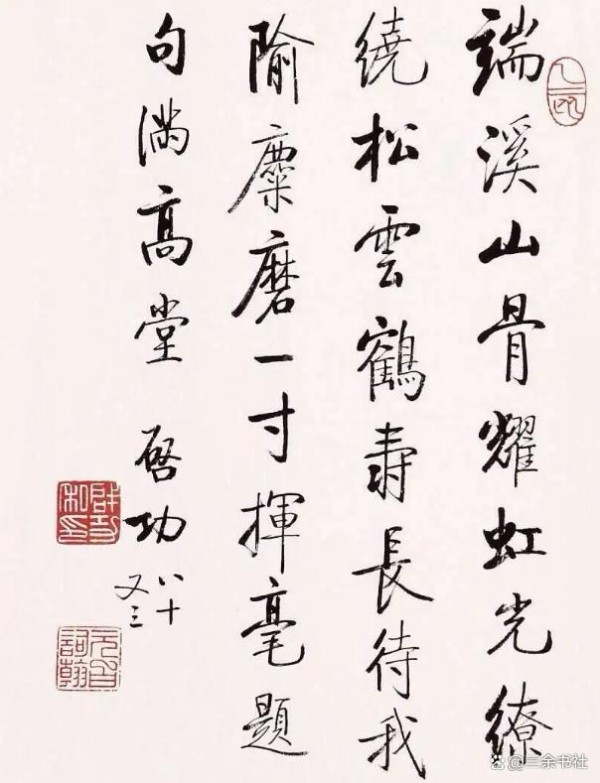 端溪山骨耀虹光繚
繞松雲鶴壽長待我
隃麋磨一寸揮毫題
句滿高堂 啓功
八十
又三
元白
詞翰
三余书社